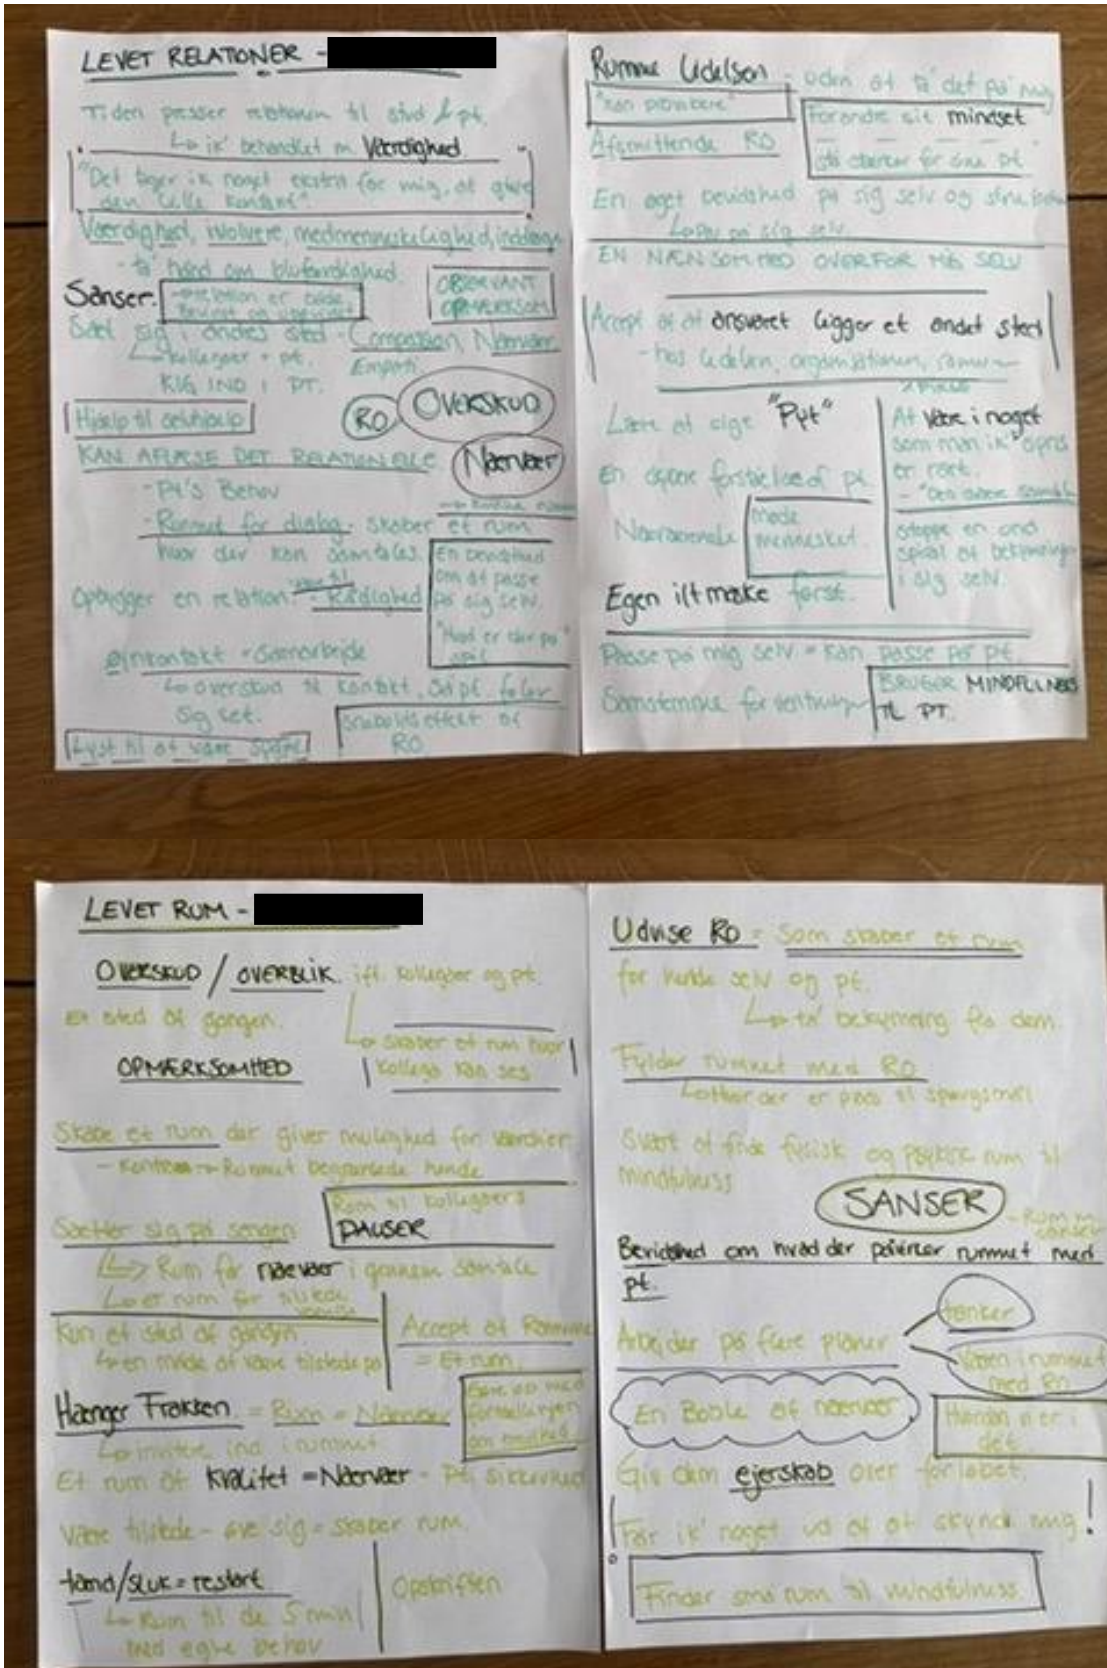 LEVET RELATIONER -
Tiden presser relationen til stud & pt.
↳ ik' behandlet m. Værdighed.
"Det tager ik noget ekstra for mig, at give
den lille kontakt".
Værdighed, involvere, medmenneskelighed, inddrage
- ta' hånd om blufærdighed.
Sanser.
- Relation er både
OBSERVANT
OPMÆRKSOM
Sæt sig i andres sted - Compassion, Nærvær
↳ kollegaer + pt. Empati
KIG IND I PT.
Hjælp til selvhjælp
RO
OVERSKUD
KAN AFLÆSE DET RELATIONELLE
Nærvær
- Pt's Behov
- Rummet for dialog - skaber et rum
hvor der kan samtales.
En bevidsthed
om at passe
på sig selv.
"Hvad er der på
spil
Opbygger en relation. - Rådighed
Øjenkontakt = Samarbejde
↳ overskud til kontakt, så pt. føler
sig set.
Lyst til at være
effekt af
RO
Rumme Ledelsen - uden at ta' det på mig
"kan provokere"
Forandre sit mindset
Afsmittende RO
stå stærkere for sine pt
En øget bevidsthed på sig selv og sine
på sig selv.
EN NÆNSOMHED OVERFOR MIG SELV
Accept af at ansvaret ligger et andet sted
- hos ledelsen, organisationen,
Lære at sige "Pyt"
At være i noget
som man ik'
er rart.
En dybere forståelse af pt.
Nærværende
møde
mennesket.
stoppe en ond
spiral af bekymringer
i sig selv.
Egen iltmaske først.
Passe på mig selv = kan passe på pt.
Samstemme forventninger
BRUGER MINDFULNESS
TIL PT.
LEVET RUM -
OVERSKUD / OVERBLIK. ift. kollegaer og pt.
Et sted at gangen.
↳ skaber et rum hvor
kollega kan ses
OPMÆRKSOMHED
Skabe et rum der giver mulighed for værdier
Rummet begrænsede hende
Rum til kollegaers
PAUSER
Sætter sig på sengen
↳ Rum for nærvær i gennem samtale
↳ et rum for tilstede
værelse
Kun et sted at gangen.
↳ en måde at være tilstede på
Accept af Rammerne
= Et rum.
Hænger Frakken = Rum = Nærvær
↳ invitere ind i rummet
fortællingen
om travlhed
Et rum af kvalitet = Nærvær - Pt. sikkerhed
være tilstede - øve sig = skaber rum.
tænd/sluk = restart
↳ Rum til de 5 min
med egne behov
Opskriften
Udvise RO = Som skaber et rum
for hende selv og pt.
↳ ta' bekymring fra dem.
Fylder rummet med RO
↳ hvor der er plads til spørgsmål
Svært at finde fysisk og psykisk rum til
mindfulness
SANSER
- Rum m.
sanser
Bevidsthed om hvad der påvirker rummet med
pt.
Arbejder på flere planer
tanker
Væren i rummet
med Ro.
En Boble af nærvær
Hvordan vi er i
det.
Giv dem ejerskab over forløbet.
Får ik' noget ud af at skynde mig!
Finder små rum til mindfulness.